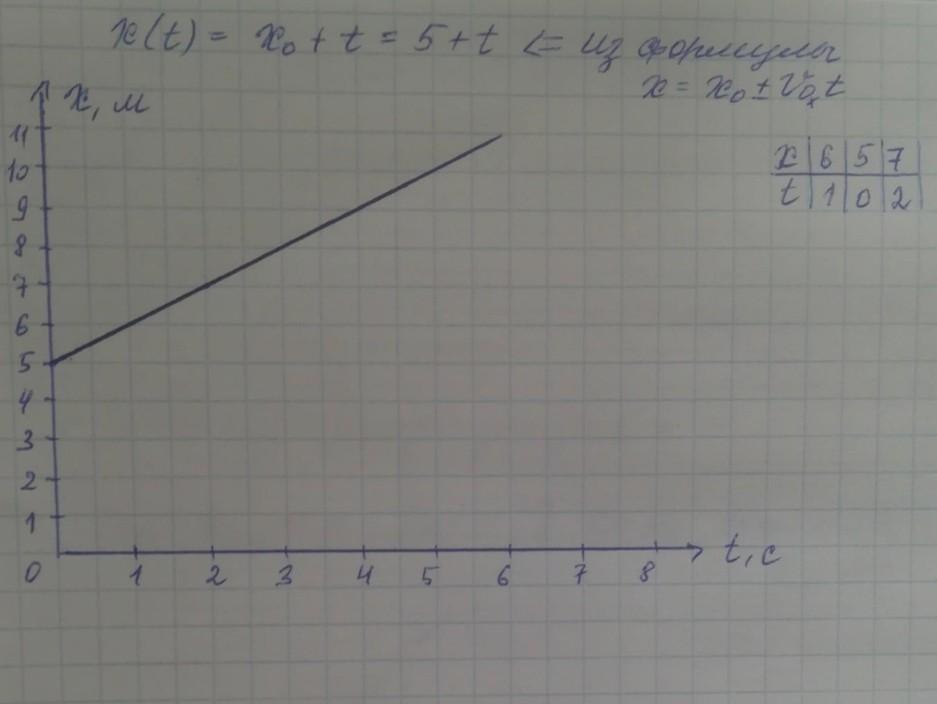 x(t) = x₀ + t = 5 + t <= из формулы
x = x₀ ± V₀ₓt
x, м
x | 6 | 5 | 7
t | 1 | 0 | 2
11
10
9
8
7
6
5
4
3
2
1
0 1 2 3 4 5 6 7 8 t, с